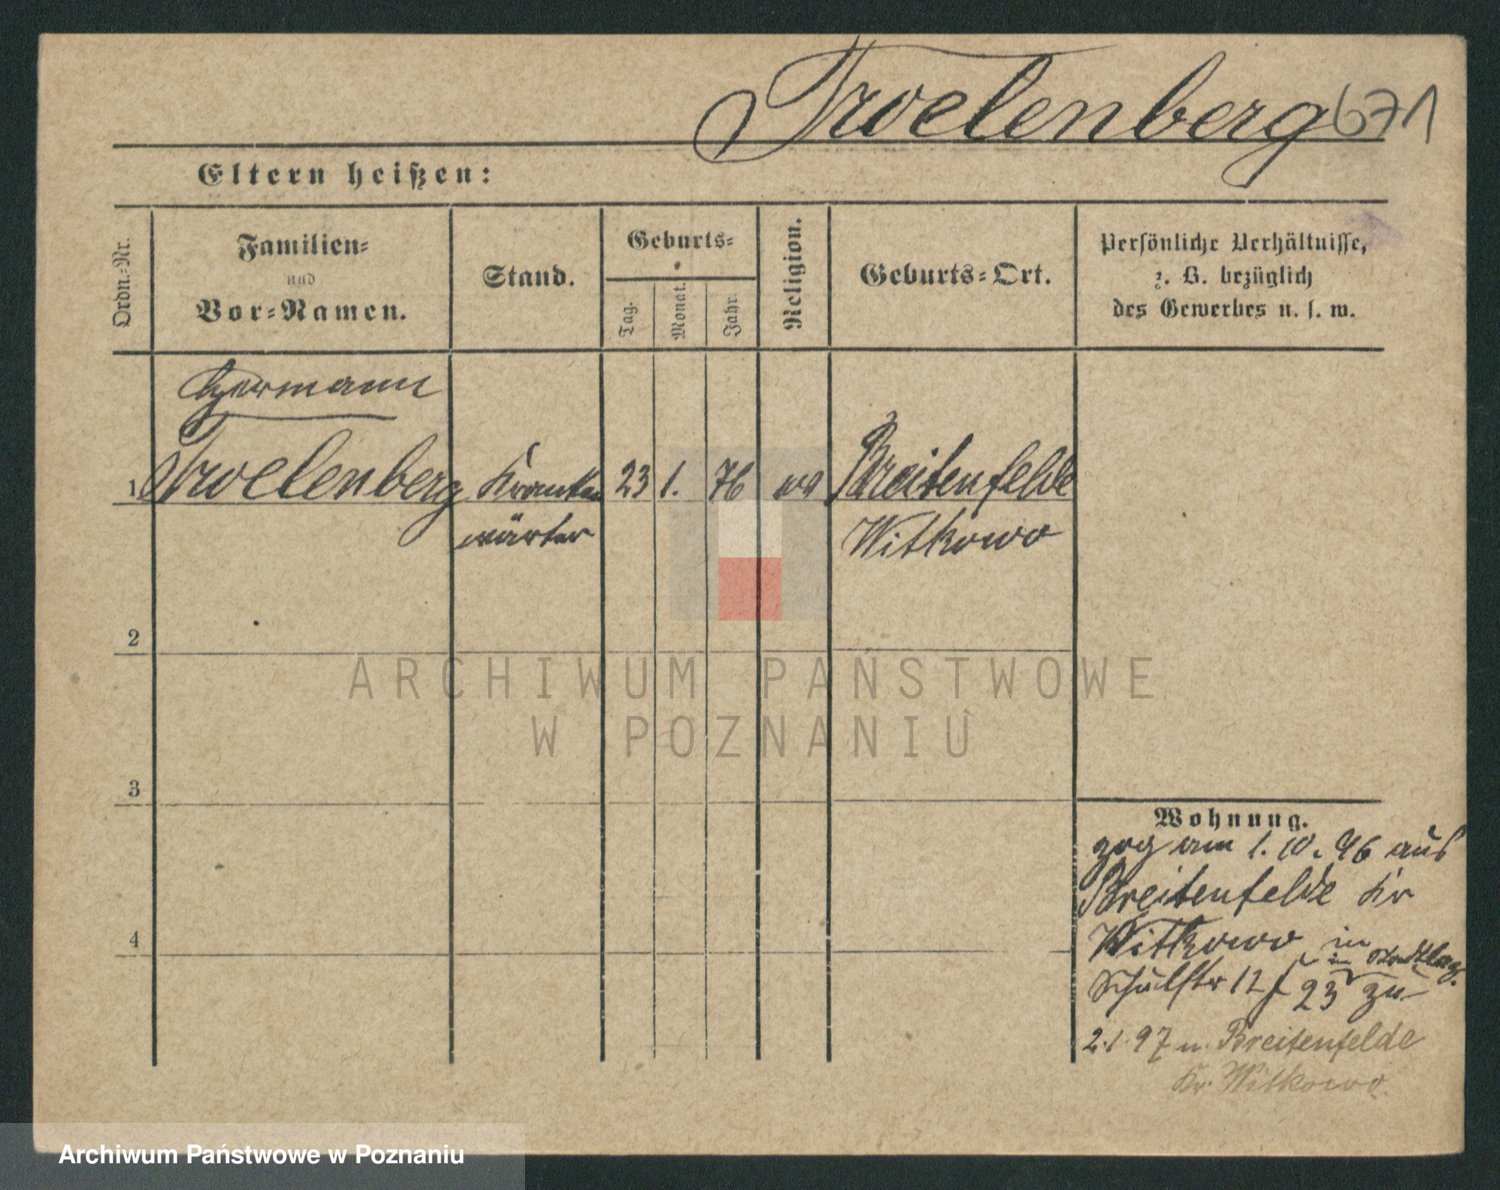 Troelenberg 671
Eltern heißen:
Ordn.-Nr.
Familien-
und
Vor-Namen.
Stand.
Geburts-
Tag.
Monat.
Jahr.
Religion.
Geburts-Ort.
Persönliche Verhältnisse,
z. B. bezüglich
des Gewerbes u. s. w.
Hermann
1 Troelenberg Kranken 23 1. 76 ev Breitenfelde
wärter Witkowo
2
3
4
Wohnung.
zog am 1. 10. 96 aus
Breitenfelde Kr
Witkowo in
Schulstr 12 23 zu
2.1.97 n. Breitenfelde
Kr. Witkowo.
ARCHIWUM PAŃSTWOWE
W POZNANIU
Archiwum Państwowe w Poznaniu